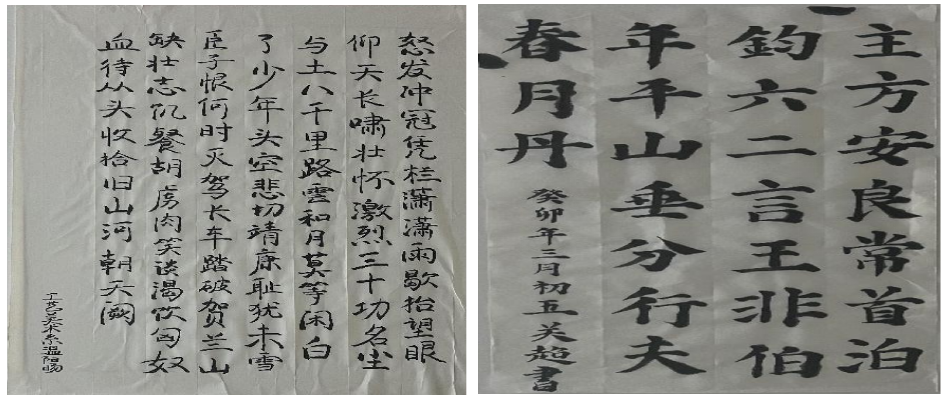 怒发冲冠凭栏潇潇雨歇抬望眼
仰天长啸壮怀激烈三十功名尘
与土八千里路雲和月莫等闲白
了少年头空悲切靖康耻犹未雪
臣子恨何时灭驾长车踏破贺兰山
缺壮志饥餐胡虏肉笑谈渴饮匈奴
血待从头收拾旧山河朝天阙
主方安良常首泊
鈞六二言王非伯
年平山垂分行夫
春月丹
癸卯年三月初五英超書